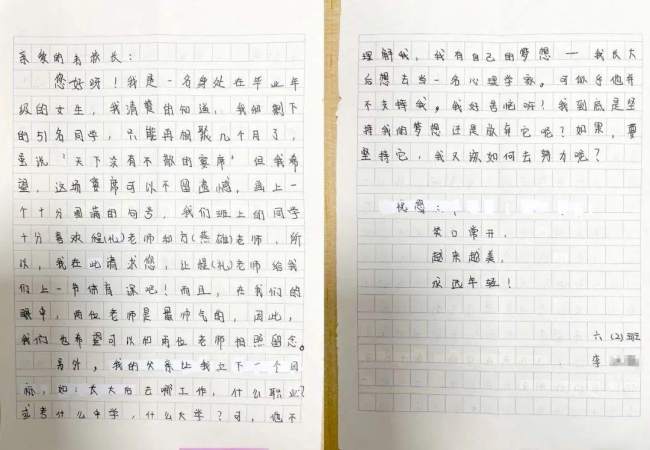 亲爱的老校长:
您好呀!我是一名身处在毕业年
级的女生,我清楚的知道,我们剩下
的51名同学,只能再相聚几个月了,
虽说‘天下没有不散的宴席’但我希
望,这场宴席可以不留遗憾,画上一
个十分圆满的句号,我们班上的同学
十分喜欢程(礼)老师和方(燕雄)老师,所
以,我在此请求您,让程(礼)老师给我
们上一节体育课吧!而且,在我们的
眼中,两位老师是最帅气的,因此,
我们也希望可以和两位老师拍照留念。
另外,我的父亲让我立下一个目
标,如:大后去哪工作,什么职业?
或考什么中学,什么大学?可,他不
理解我,我有自己的梦想——我长大
后想去当一名心理学家。可似乎他并
不支持我。我好苦恼呀!我到底是坚
持我的梦想还是放弃它呢?如果,要
坚持它,我又该如何去努力呢?
祝您:
笑口常开,
越来越美,
永远年轻!
六(2)班
李